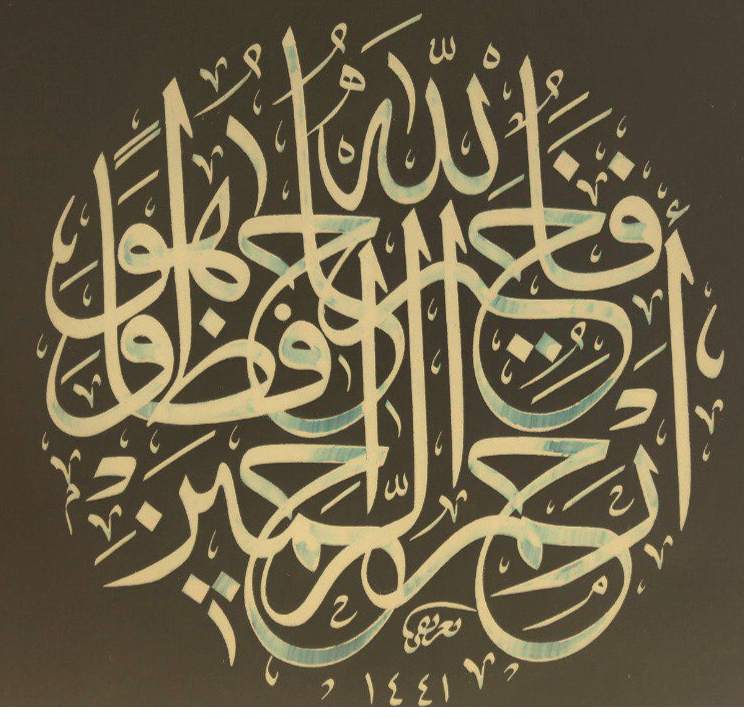 فالله خير حافظا وهو أرحم الراحمين
١٤٤١